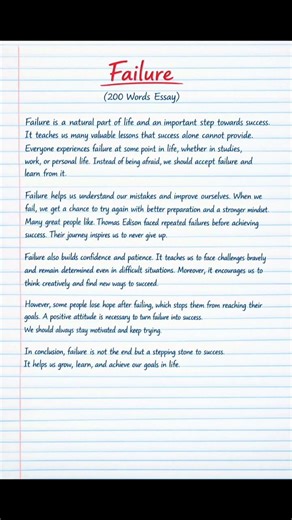 Failure
(200 Words Essay)
Failure is a natural part of life and an important step towards success.
It teaches us many valuable lessons that success alone cannot provide.
Everyone experiences failure at some point in life, whether in studies,
work, or personal life. Instead of being afraid, we should accept failure and
learn from it.
Failure helps us understand our mistakes and improve ourselves. When we
fail, we get a chance to try again with better preparation and a stronger mindset.
Many great people like Thomas Edison faced repeated failures before achieving
success. Their journey inspires us to never give up.
Failure also builds confidence and patience. It teaches us to face challenges bravely
and remain determined even in difficult situations. Moreover, it encourages us to
think creatively and find new ways to succeed.
However, some people lose hope after failing, which stops them from reaching their
goals. A positive attitude is necessary to turn failure into success.
We should always stay motivated and keep trying.
In conclusion, failure is not the end but a stepping stone to success.
It helps us grow, learn, and achieve our goals in life.